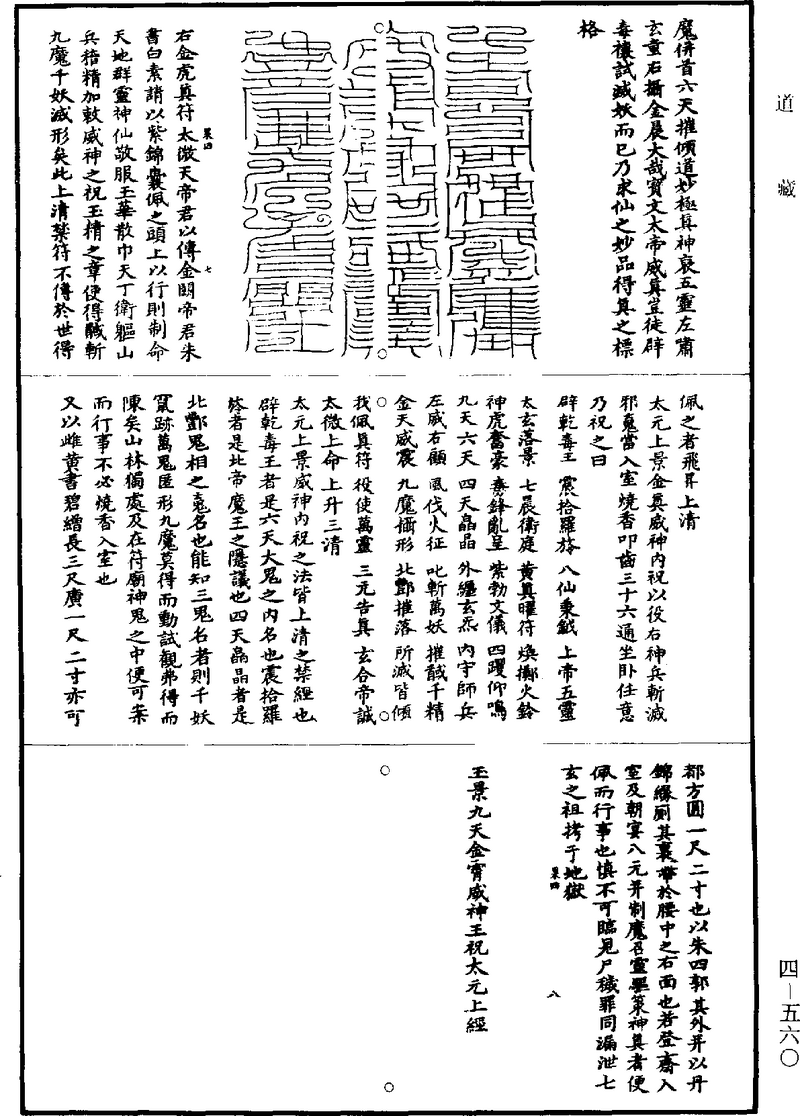 道藏
魔併首六天摧傾道妙極真神哀五靈左肅
玄童右攝金晨大哉寶文太帝威真豈徒辟
毒禳試滅妖而已乃求仙之妙品得真之標
格
右金虎真符太微天帝君以傳金明帝君朱
書白素請以紫錦囊佩之頭上以行則制命
天地群靈神仙敬服玉華散巾天丁衛軀山
兵積精加敕威神之祝玉精之章便得馘斬
九魔千妖滅形矣此上清禁符不傳於世得
杲四
七
佩之者飛昇上清
太元上景金真威神內祝以役右神兵斬滅
邪鬼當入室燒香叩齒三十六通坐臥任意
乃祝之曰
辟乾毒王 震拾羅旂 八仙秉鉞 上帝五靈
太玄落景 七晨衛庭 黃真曜符 煥擲火鈴
神虎奮豪 毒鋒亂呈 紫勃文儀 四躍仰鳴
九天六天 四天晶晶 外纏玄炁 內守師兵
左威右顧 風伐火征 叱斬萬妖 摧馘千精
金天威震 九魔攝形 北酆摧落 所滅皆傾
我佩真符 役使萬靈 三元告真 玄合帝誠
太微上命 上升三清
太元上景威神內祝之法皆上清之禁經也
辟乾毒王者是六天大鬼之內名也震拾羅
旂者是北帝魔王之隱議也四天晶晶者是
北酆鬼相之鬼名也能知三鬼名者則千妖
竄跡萬鬼匿形九魔莫得而動試觀弗得而
陳矣山林獨處及在符廟神鬼之中便可案
而行事不必燒香入室也
又以雌黃書碧繒長三尺廣一尺二寸亦可
都方圓一尺二寸也以朱四郭其外并以丹
錦緣廁其裏帶於腰中之右面也若登齋入
室及朝宴八元并制魔召靈畢策神真者便
佩而行事也慎不可臨見尸穢罪同漏泄七
玄之祖拷于地獄
杲四
八
玉景九天金霄威神王祝太元上經
四—五六〇